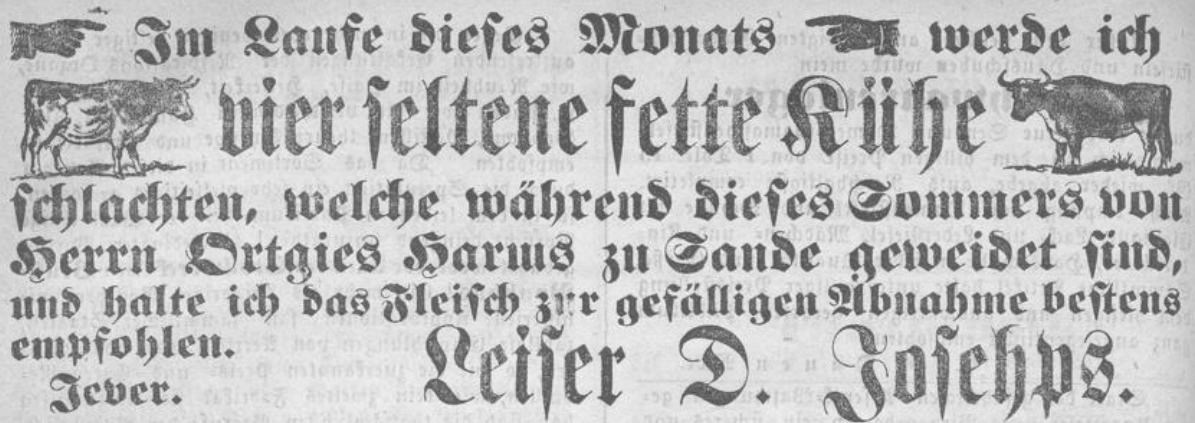 Im Laufe dieses Monats werde ich
vier seltene fette Kühe
schlachten, welche während dieses Sommers von
Herrn Ortgies Harms zu Sande geweidet sind,
und halte ich das Fleisch zur gefälligen Abnahme bestens
empfohlen.
Jever. Leiser D. Josephs.